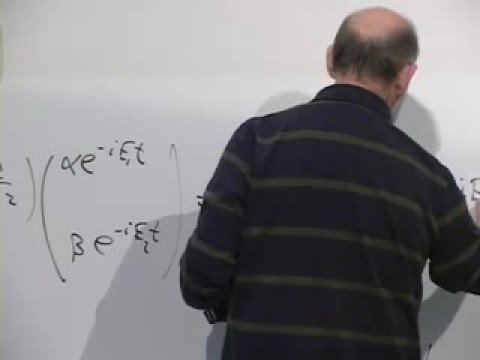 αe^{-iE₁t}
2 )( ) =
βe^{-iE₂t}